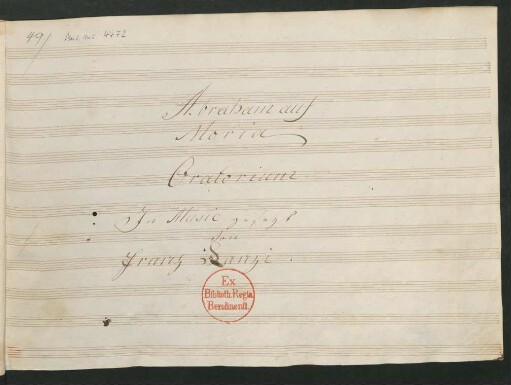 49/ Mus. ms. 4472
Abraham auf
Moria
Oratorium
In Music gesezt
von
Franz Danzi.
Ex
Biblioth. Regia
Berolinensi.